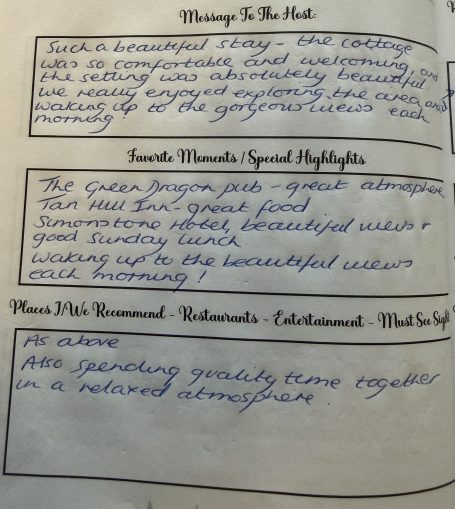 Message To The Host:
Such a beautiful stay - the cottage
was so comfortable and welcoming, and
the setting was absolutely beautiful
we really enjoyed exploring the area and
waking up to the gorgeous views each
morning!
Favorite Moments / Special Highlights
The Green Dragon pub - great atmosphere
Tan Hill Inn - great food
Simonstone Hotel, beautiful views +
good Sunday lunch
Waking up to the beautiful views
each morning!
Places I/We Recommend - Restaurants - Entertainment - Must See Sigh
As above
Also spending quality time together
in a relaxed atmosphere.